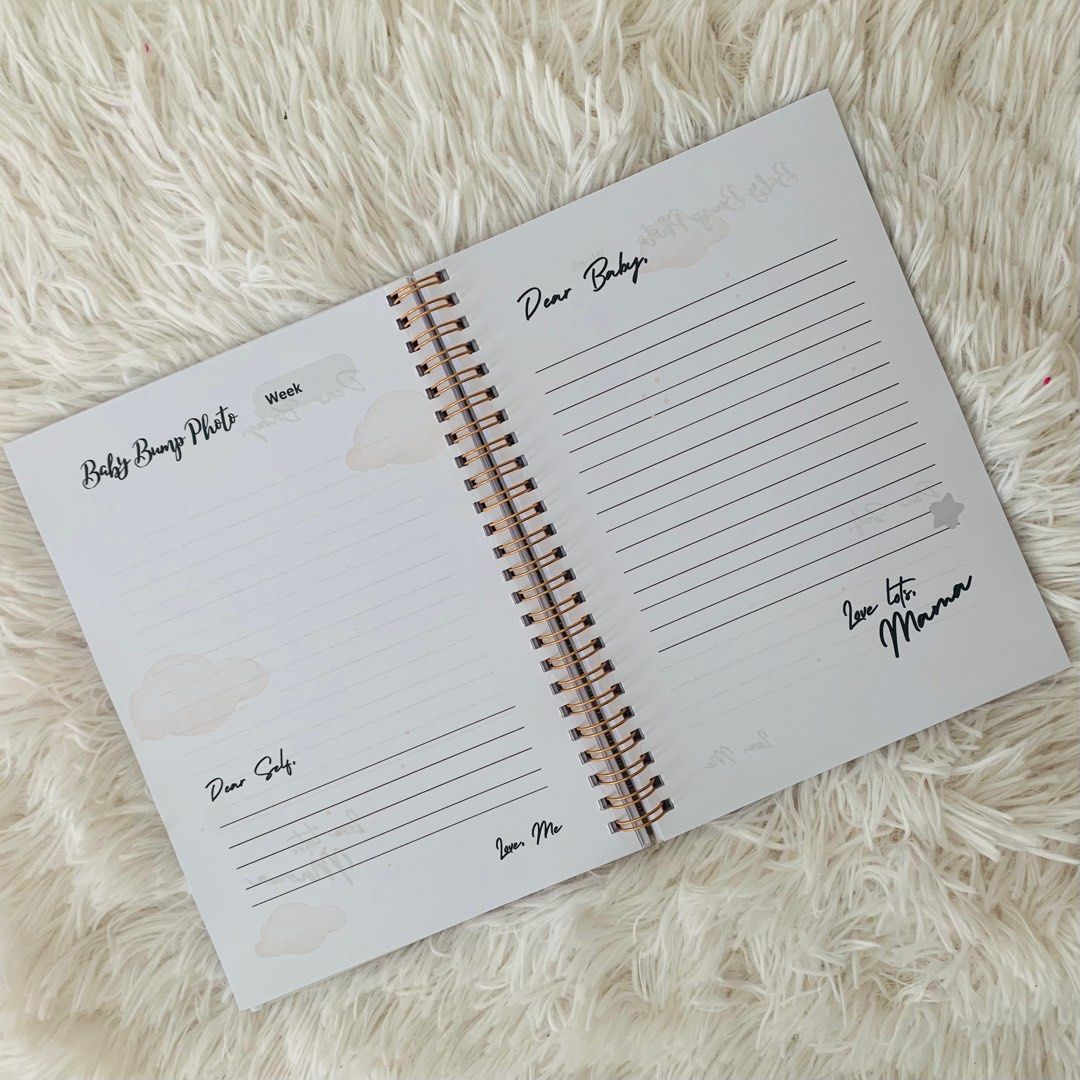 Baby Bump Photo Week
Dear Self,
Love, Me
Dear Baby,
Love Lots,
Mama